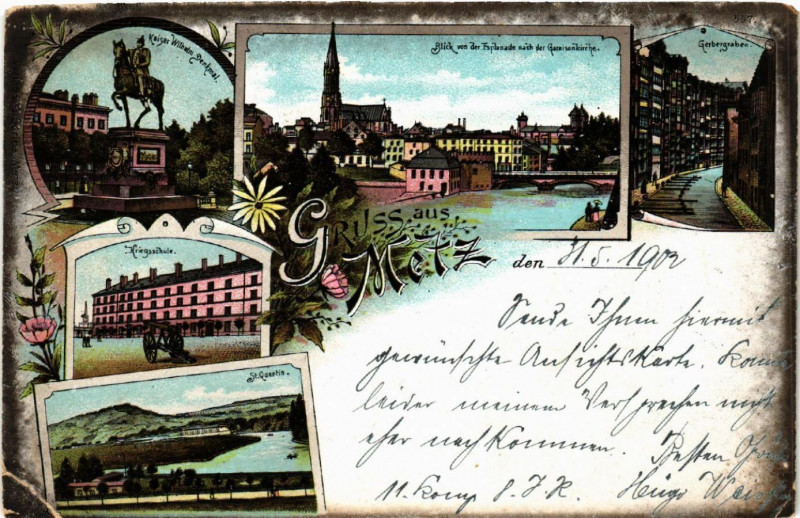 Kaiser Wilhelm Denkmal.
Blick von der Esplanade nach der Garnisonkirche.
Gerbergraben.
Kriegsschule.
St. Quentin.
GRUSS aus
Metz
den 31.5.1902
Sende Ihnen hiermit
gewünschte Ansichtskarte. Konnte
leider meinem Versprechen nicht
eher nachkommen. Besten Gruß
11. Komp. 8. I. R. Hugo